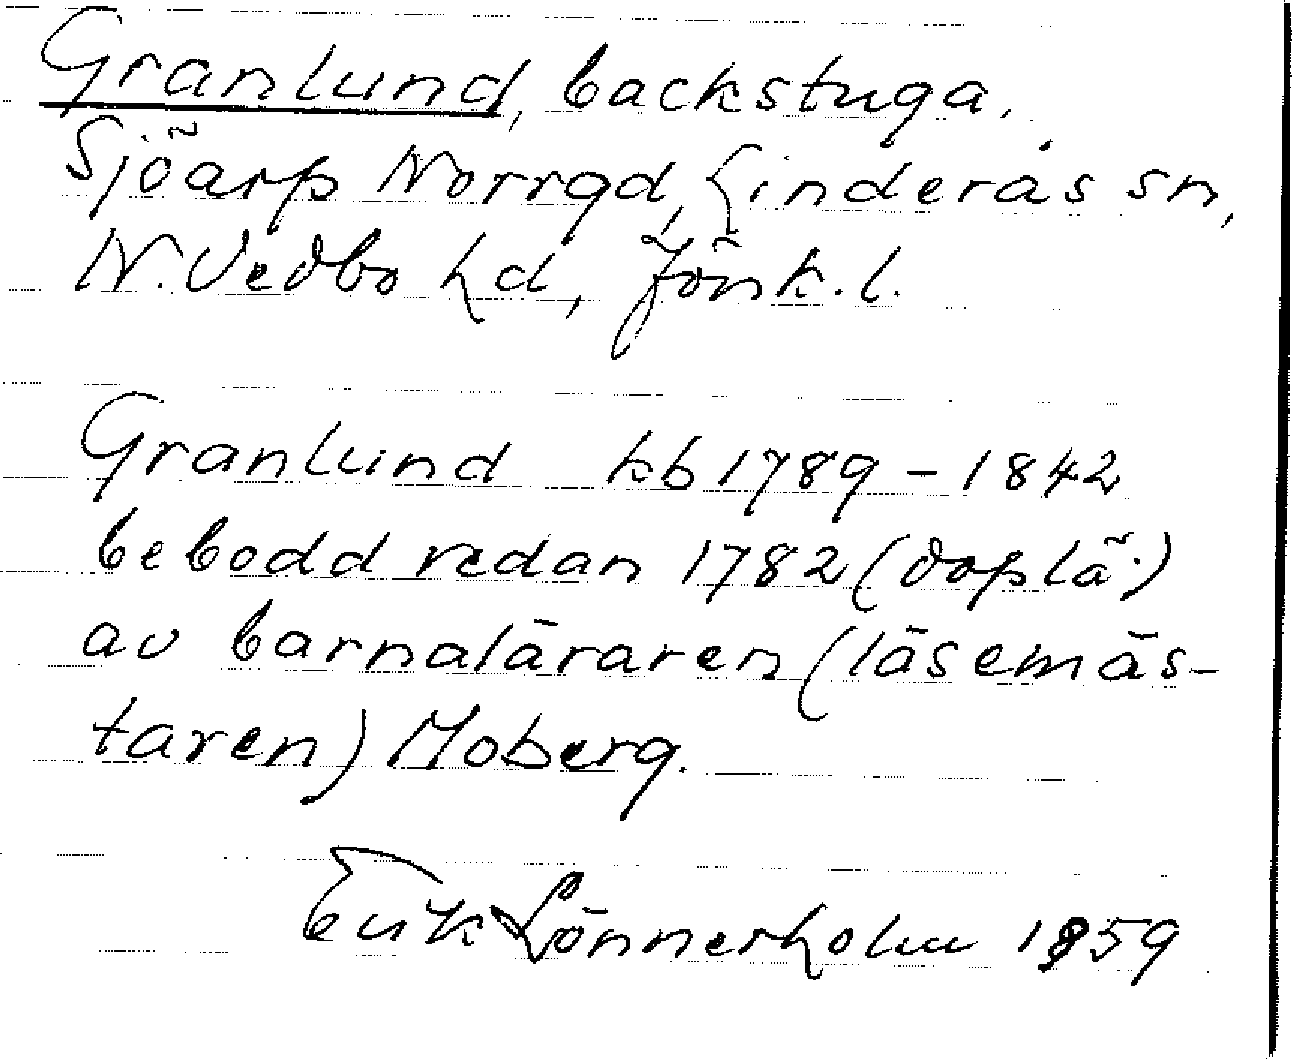 Granlund, backstuga,
Sjöarp Norrgd, Linderås sn,
N. Vedbo hd, Jönk. l.
Granlund kb 1789 - 1842
bebodd redan 1782 (doplä.)
av barnaläraren (läsemäs-
taren) Moberg.
Erik Lönnerholm 1959